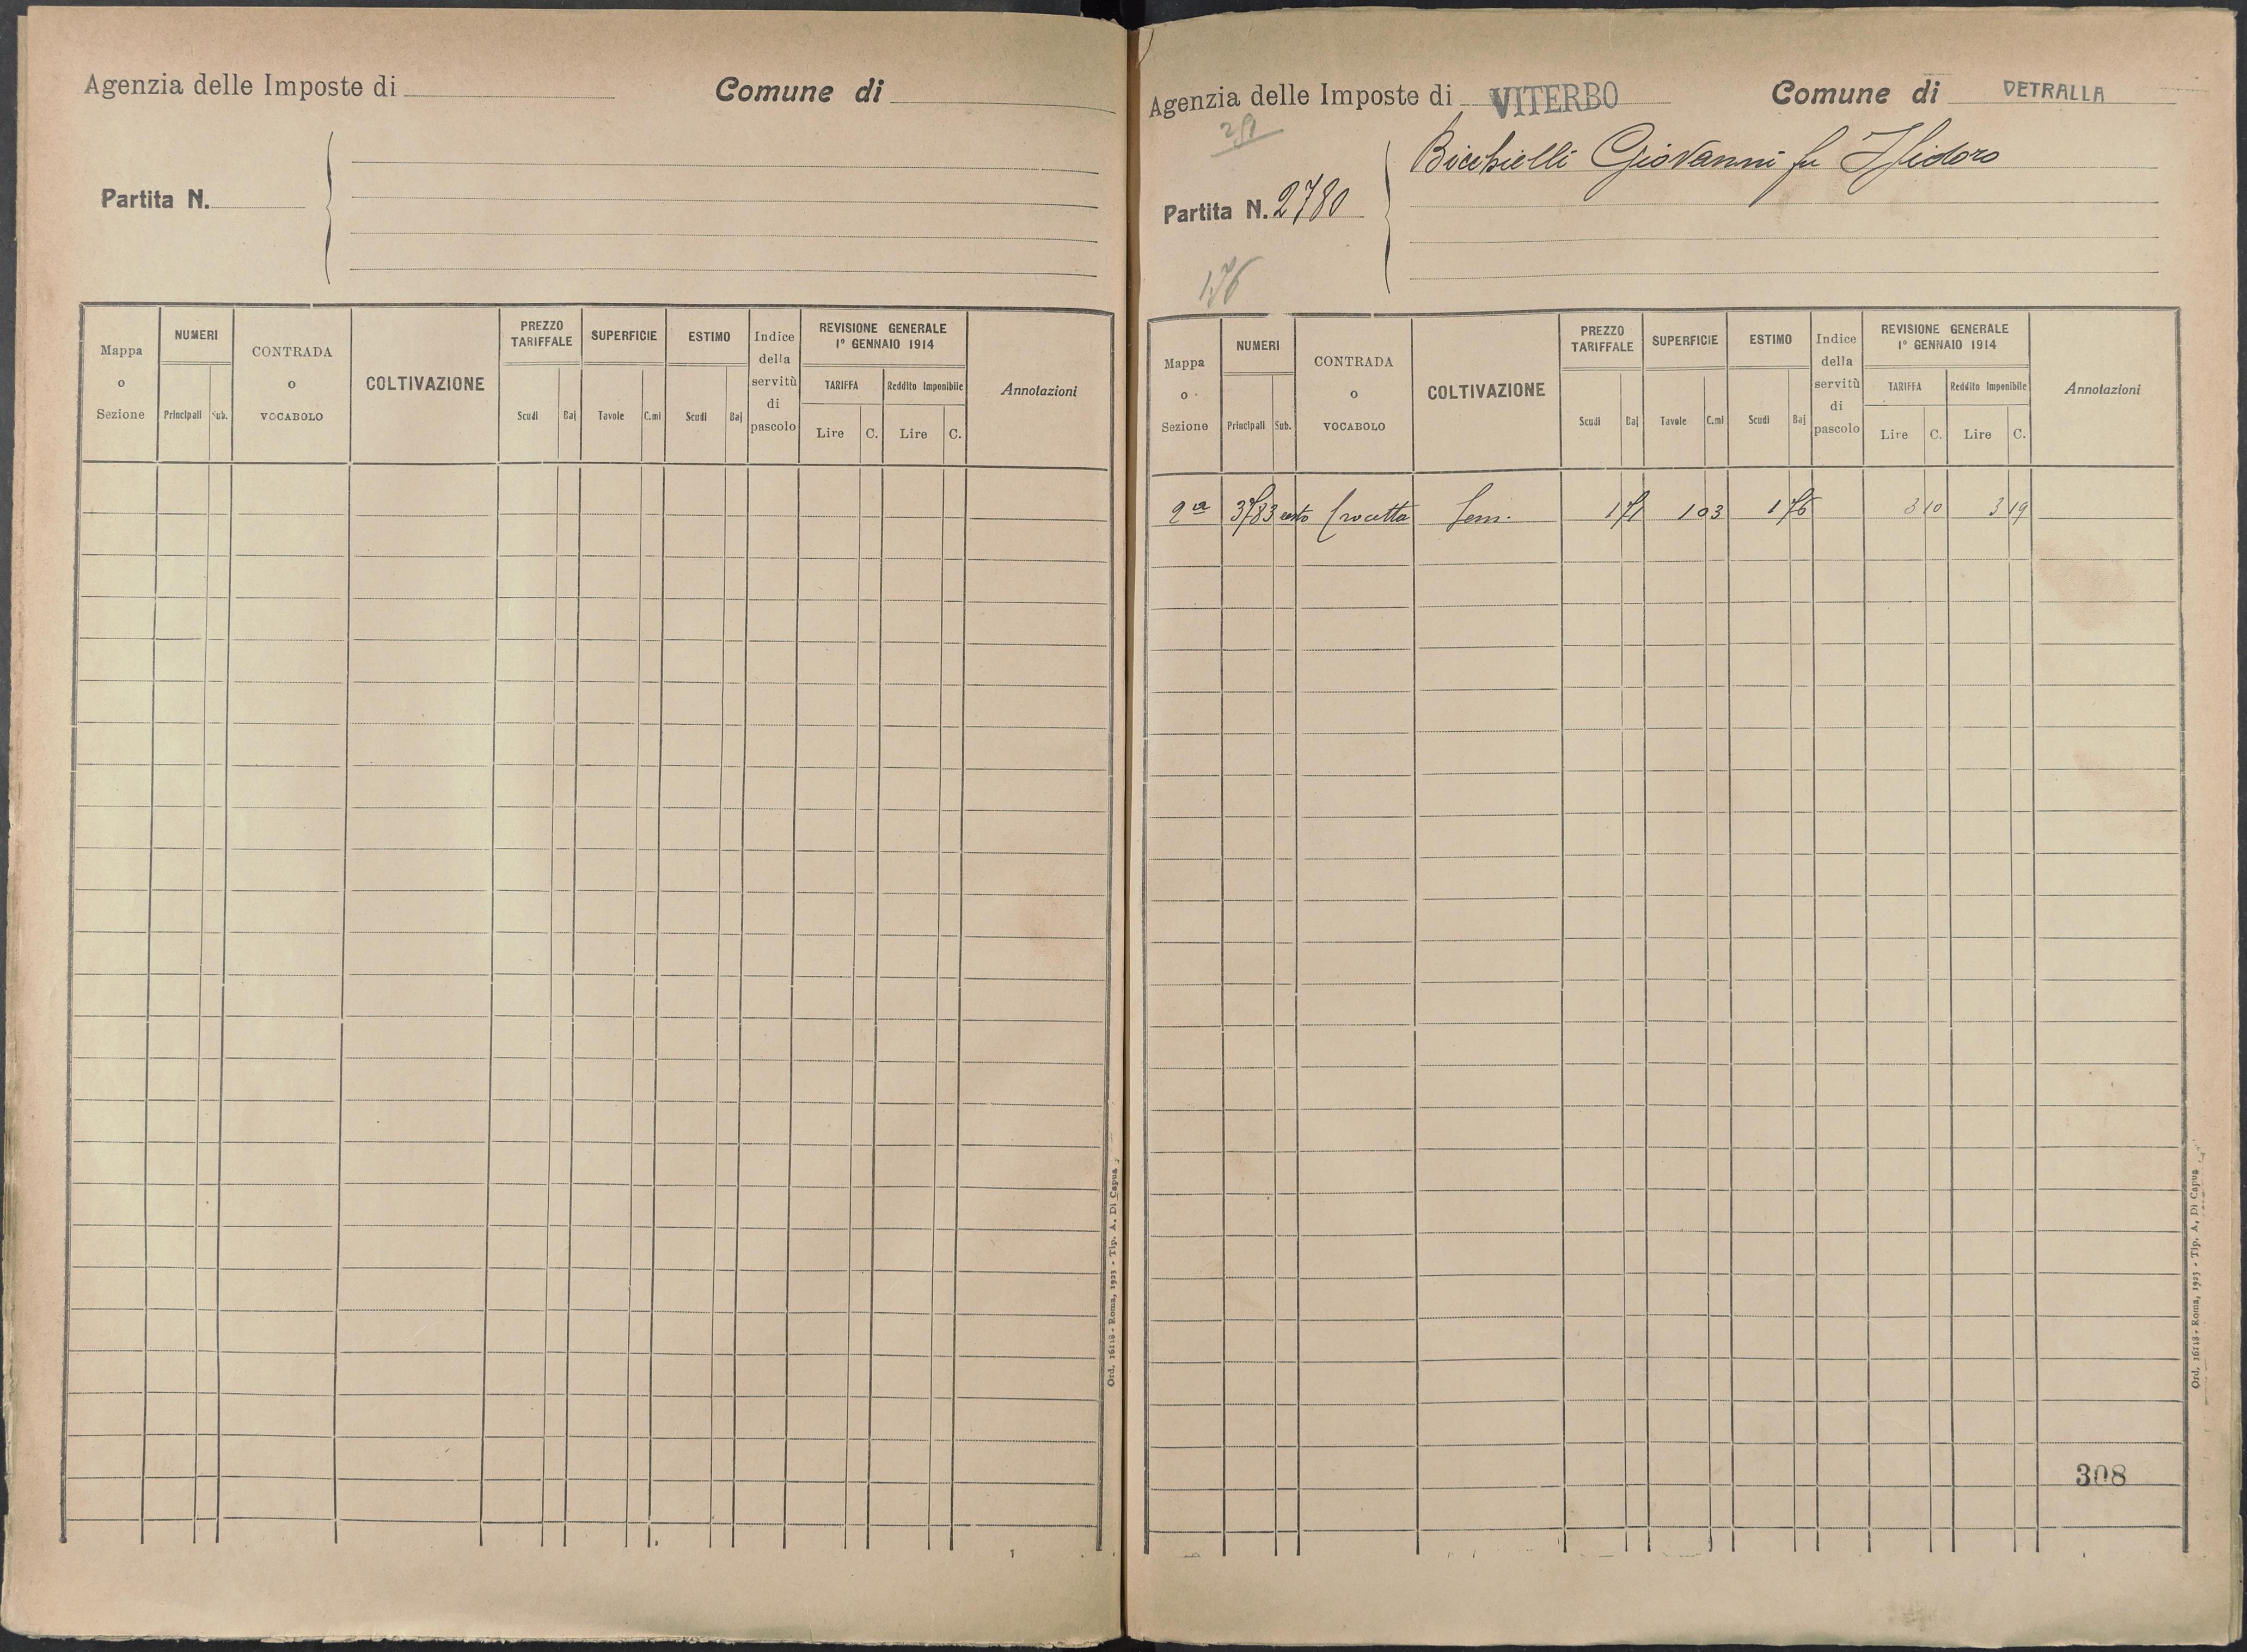 Agenzia delle Imposte di
Comune di
Partita N.
Mappa o Sezione
NUMERI
Principali Sub.
CONTRADA O VOCABOLO
COLTIVAZIONE
PREZZO TARIFFALE
Scudi Baj
SUPERFICIE
Tavole C.mi
ESTIMO
Scudi Baj
Indice della servitù di pascolo
REVISIONE GENERALE
1° GENNAIO 1914
TARIFFA
Lire C.
Reddito Imponibile
Lire C.
Annotazioni
Ord. 16118 - Roma, 1923 - Tip. A. Di Capua
Agenzia delle Imposte di VITERBO
Comune di VETRALLA
Bicchielli Giovanni fu Isidoro
Partita N. 2780
176
Mappa o Sezione
NUMERI
Principali Sub.
CONTRADA O VOCABOLO
COLTIVAZIONE
PREZZO TARIFFALE
Scudi Baj
SUPERFICIE
Tavole C.mi
ESTIMO
Scudi Baj
Indice della servitù di pascolo
REVISIONE GENERALE
1° GENNAIO 1914
TARIFFA
Lire C.
Reddito Imponibile
Lire C.
Annotazioni
2ª 3783 Crocetta Sem. 1 71 1 03 1 76 3 10 3 19
308
Ord. 16118 - Roma, 1923 - Tip. A. Di Capua